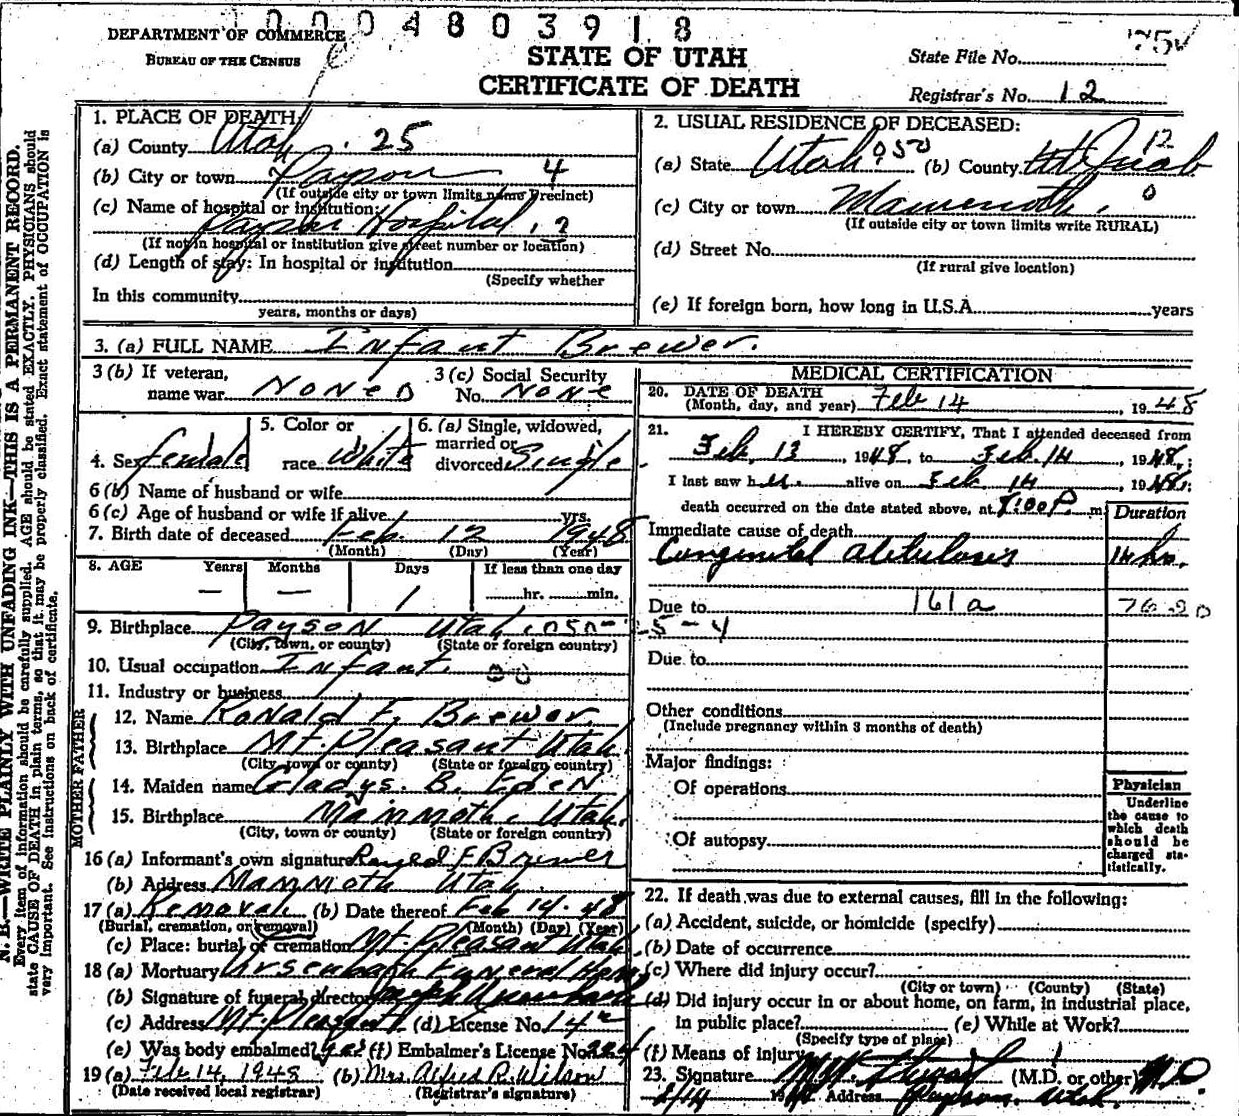 0004803918
75
DEPARTMENT OF COMMERCE
BUREAU OF THE CENSUS
STATE OF UTAH
CERTIFICATE OF DEATH
State File No.
Registrar's No. 12
N. B.—WRITE PLAINLY WITH UNFADING INK—THIS IS A PERMANENT RECORD.
Every item of information should be carefully supplied. AGE should be stated EXACTLY. PHYSICIANS should
state CAUSE OF DEATH in plain terms, so that it may be properly classified. Exact statement of OCCUPATION is
very important. See instructions on back of certificate.
1. PLACE OF DEATH:
(a) County Utah . 25
(b) City or town Payson 4
(If outside city or town limits name Precinct)
(c) Name of hospital or institution:
Payson Hospital . 2
(If not in hospital or institution give street number or location)
(d) Length of stay: In hospital or institution
(Specify whether
In this community
years, months or days)
2. USUAL RESIDENCE OF DECEASED:
12
(a) State Utah 050 (b) County Juab
(c) City or town Mammoth. 0
(If outside city or town limits write RURAL)
(d) Street No.
(If rural give location)
(e) If foreign born, how long in U.S.A. years
3. (a) FULL NAME Infant Brewer.
3 (b) If veteran,
name war None
3 (c) Social Security
No. None
4. Sex female
5. Color or
race White
6. (a) Single, widowed,
married or
divorced Single
6 (b) Name of husband or wife
6 (c) Age of husband or wife if alive yrs.
7. Birth date of deceased Feb. 12 1948
(Month) (Day) (Year)
8. AGE Years Months Days If less than one day
— — 1 hr. min.
9. Birthplace Payson Utah. 050-
-5-4
(City, town, or county) (State or foreign country)
10. Usual occupation Infant.
11. Industry or business
FATHER
12. Name Ronald F. Brewer.
13. Birthplace Mt. Pleasant Utah
(City, town or county) (State or foreign country)
MOTHER
14. Maiden name Gladys. B. Eden
15. Birthplace Mammoth. Utah.
(City, town or county) (State or foreign country)
16 (a) Informant's own signature F Brewer
(b) Address Mammoth Utah.
17 (a) Removal (b) Date thereof Feb 14 - 48
(Burial, cremation, or removal) (Month) (Day) (Year)
(c) Place: burial or cremation Mt. Pleasant Utah
18 (a) Mortuary Ursenbach Funeral Home
(b) Signature of funeral director Ursenbach
(c) Address Mt. Pleasant (d) License No. 142
(e) Was body embalmed? yes (f) Embalmer's License No. 224
19 (a) Feb 14, 1948 (b) Mrs. Alfred R. Wilson
(Date received local registrar) (Registrar's signature)
MEDICAL CERTIFICATION
20. DATE OF DEATH
(Month, day, and year) Feb 14, 1948
21. I HEREBY CERTIFY, That I attended deceased from
Feb. 13, 1948, to Feb. 14, 1948;
I last saw her alive on Feb. 14, 1948;
death occurred on the date stated above, at 8:00 P. m.
Duration
Immediate cause of death
Congenital atelectasis 14 hrs.
Due to 161a 76-20
Due to
Other conditions
(Include pregnancy within 3 months of death)
Major findings:
Of operations
Of autopsy
Physician
Underline
the cause to
which death
should be
charged sta-
tistically.
22. If death was due to external causes, fill in the following:
(a) Accident, suicide, or homicide (specify)
(b) Date of occurrence
(c) Where did injury occur?
(City or town) (County) (State)
(d) Did injury occur in or about home, on farm, in industrial place,
in public place? (e) While at Work?
(Specify type of place)
(f) Means of injury
23. Signature Stewart (M.D. or other) M.D.
2/14 19 Address Payson. Utah.